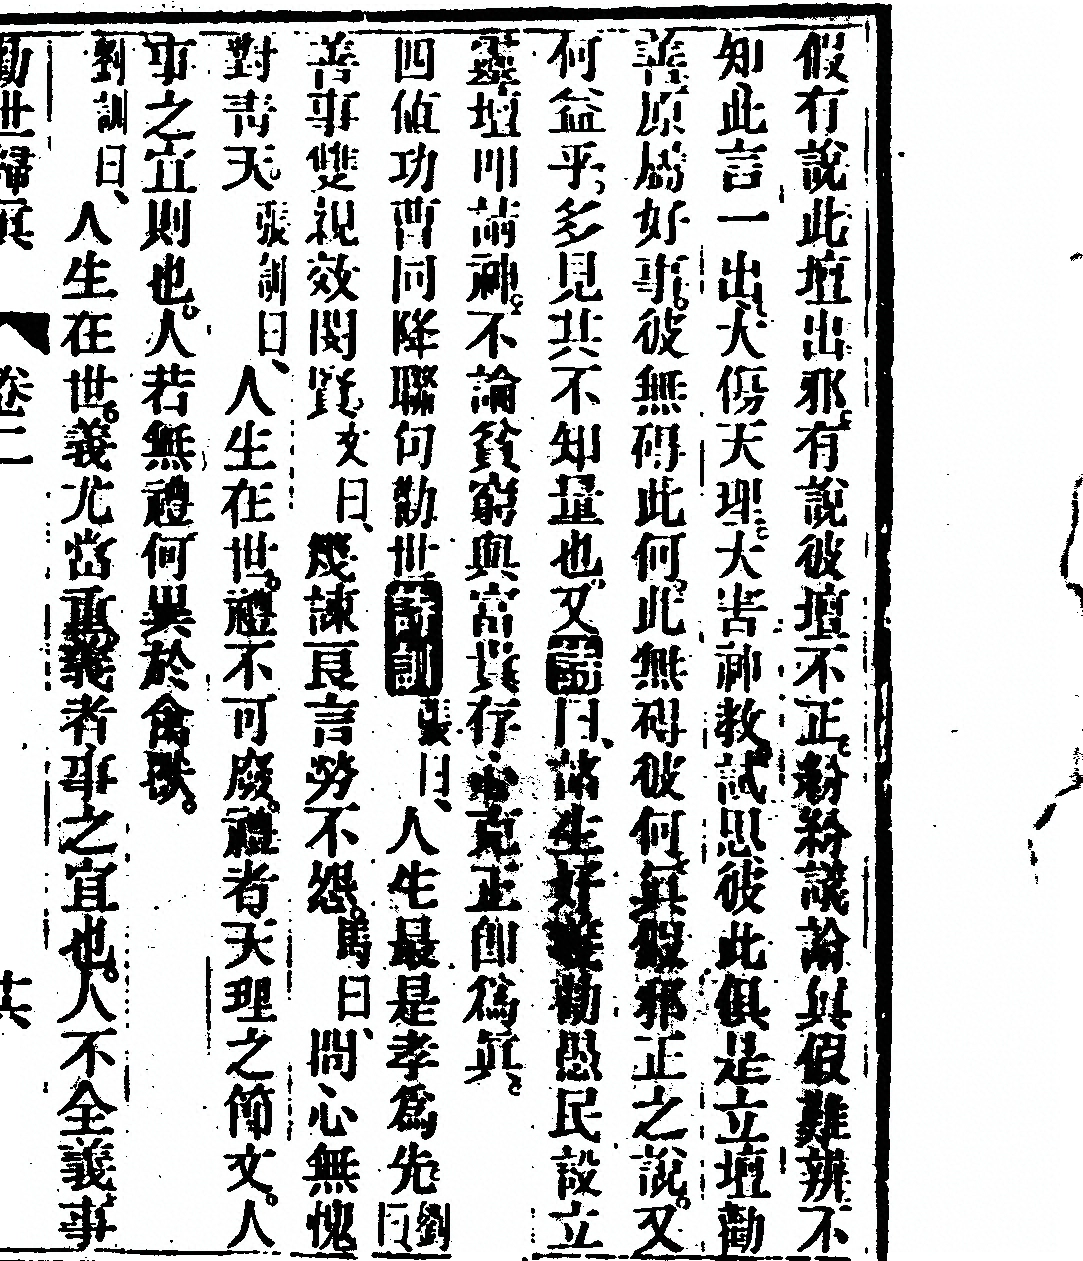 假有說此壇出邪、有說彼壇不正、紛紛議論、眞假難辨、不
知此言一出、大傷天理、大害神教、試思彼此俱是立壇勸
善、原屬好事。彼無碍此何、此無碍彼何、眞假邪正之說。又
何益乎、多見其不知量也、又 訓曰、諸生好善、勸愚民設立
靈壇叩請神。不論貧窮與富貴、存心克正卽爲眞。
四値功曹同降聯句勸世詩訓 張曰、人生最是孝爲先 劉曰
善事雙親效閔賢 文曰、幾諫良言勞不怨。馬曰、問心無愧
對靑天 張訓曰、人生在世。禮不可廢。禮者天理之節文。人
事之宜則也。人若無禮何異於禽獸。
劉訓曰、人生在世。義尤當重、義者事之宜也。人不全義事
勸世歸眞 卷二 共